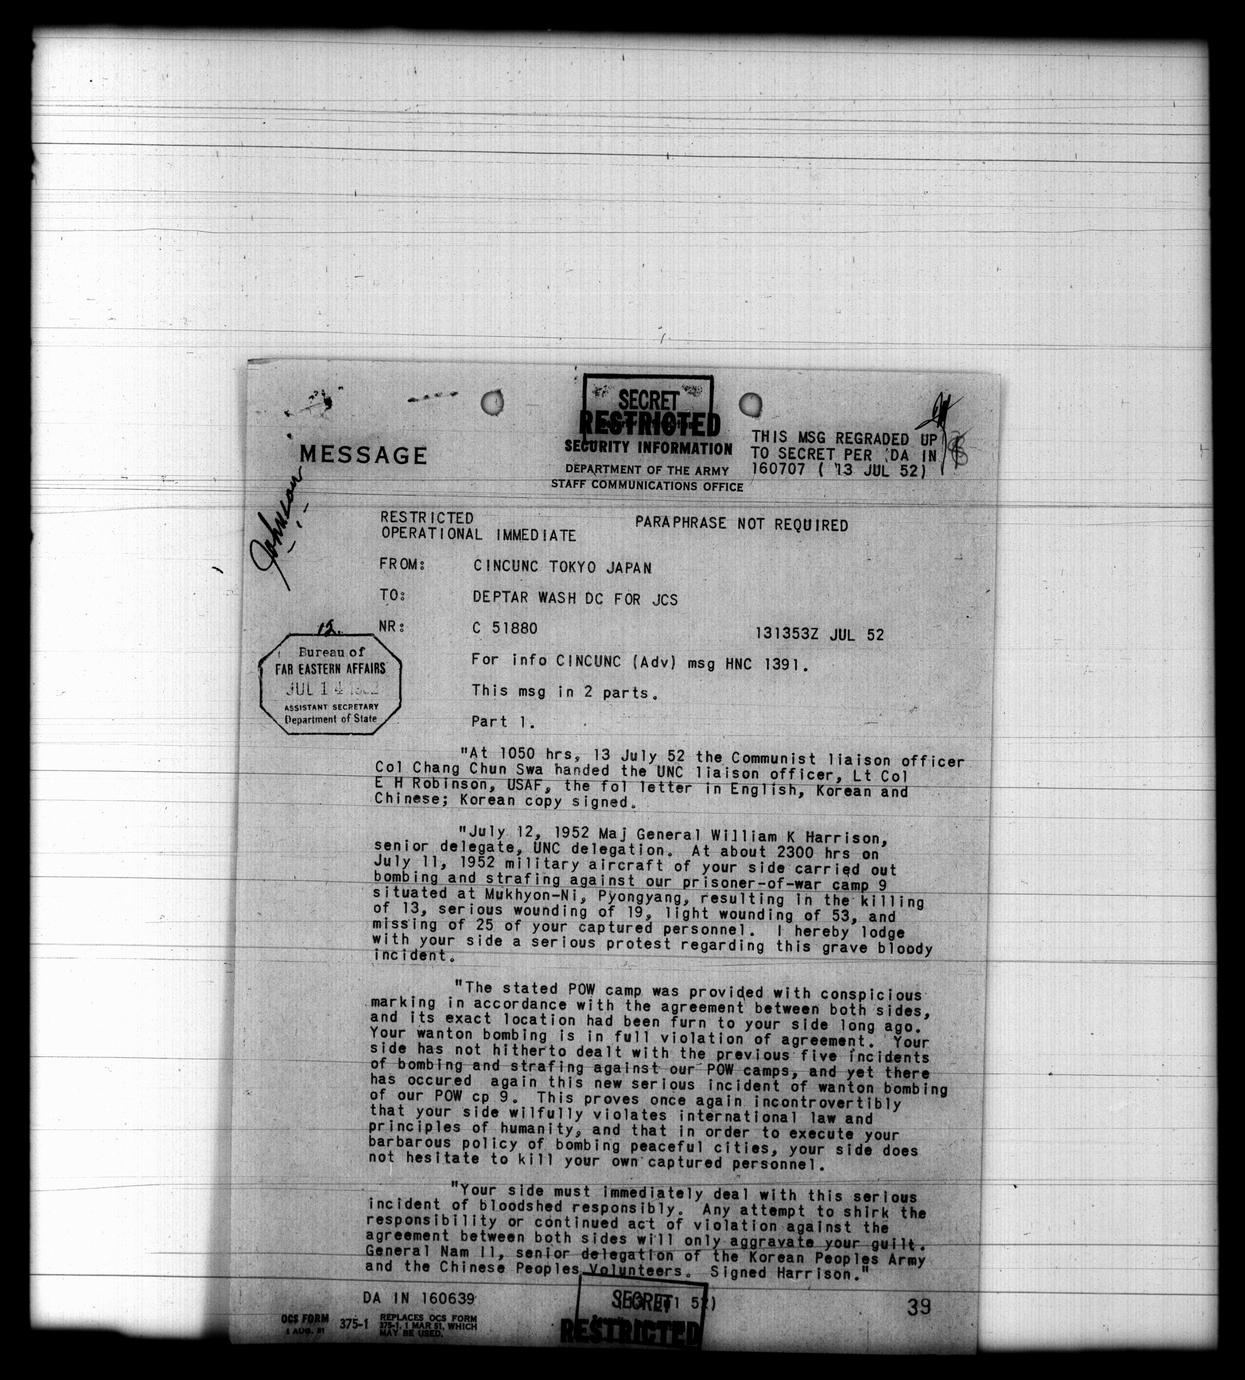 SECRET
RESTRICTED
SECURITY INFORMATION
MESSAGE
DEPARTMENT OF THE ARMY
STAFF COMMUNICATIONS OFFICE
THIS MSG REGRADED UP
TO SECRET PER DA IN
160707 ( 13 JUL 52)
Johnson
RESTRICTED
PARAPHRASE NOT REQUIRED
OPERATIONAL IMMEDIATE
FROM: CINCUNC TOKYO JAPAN
TO: DEPTAR WASH DC FOR JCS
NR: C 51880 131353Z JUL 52
12.
Bureau of
FAR EASTERN AFFAIRS
JUL 14 1952
ASSISTANT SECRETARY
Department of State
For info CINCUNC (Adv) msg HNC 1391.
This msg in 2 parts.
Part 1.
"At 1050 hrs, 13 July 52 the Communist liaison officer
Col Chang Chun Swa handed the UNC liaison officer, Lt Col
E H Robinson, USAF, the fol letter in English, Korean and
Chinese; Korean copy signed.
"July 12, 1952 Maj General William K Harrison,
senior delegate, UNC delegation. At about 2300 hrs on
July 11, 1952 military aircraft of your side carried out
bombing and strafing against our prisoner-of-war camp 9
situated at Mukhyon-Ni, Pyongyang, resulting in the killing
of 13, serious wounding of 19, light wounding of 53, and
missing of 25 of your captured personnel. I hereby lodge
with your side a serious protest regarding this grave bloody
incident.
"The stated POW camp was provided with conspicious
marking in accordance with the agreement between both sides,
and its exact location had been furn to your side long ago.
Your wanton bombing is in full violation of agreement. Your
side has not hitherto dealt with the previous five incidents
of bombing and strafing against our POW camps, and yet there
has occured again this new serious incident of wanton bombing
of our POW cp 9. This proves once again incontrovertibly
that your side wilfully violates international law and
principles of humanity, and that in order to execute your
barbarous policy of bombing peaceful cities, your side does
not hesitate to kill your own captured personnel.
"Your side must immediately deal with this serious
incident of bloodshed responsibly. Any attempt to shirk the
responsibility or continued act of violation against the
agreement between both sides will only aggravate your guilt.
General Nam Il, senior delegation of the Korean Peoples Army
and the Chinese Peoples Volunteers. Signed Harrison."
DA IN 160639
SECRET
39
RESTRICTED
OCS FORM
1 AUG. 51
375-1
REPLACES OCS FORM
375-1, 1 MAR 51, WHICH
MAY BE USED.